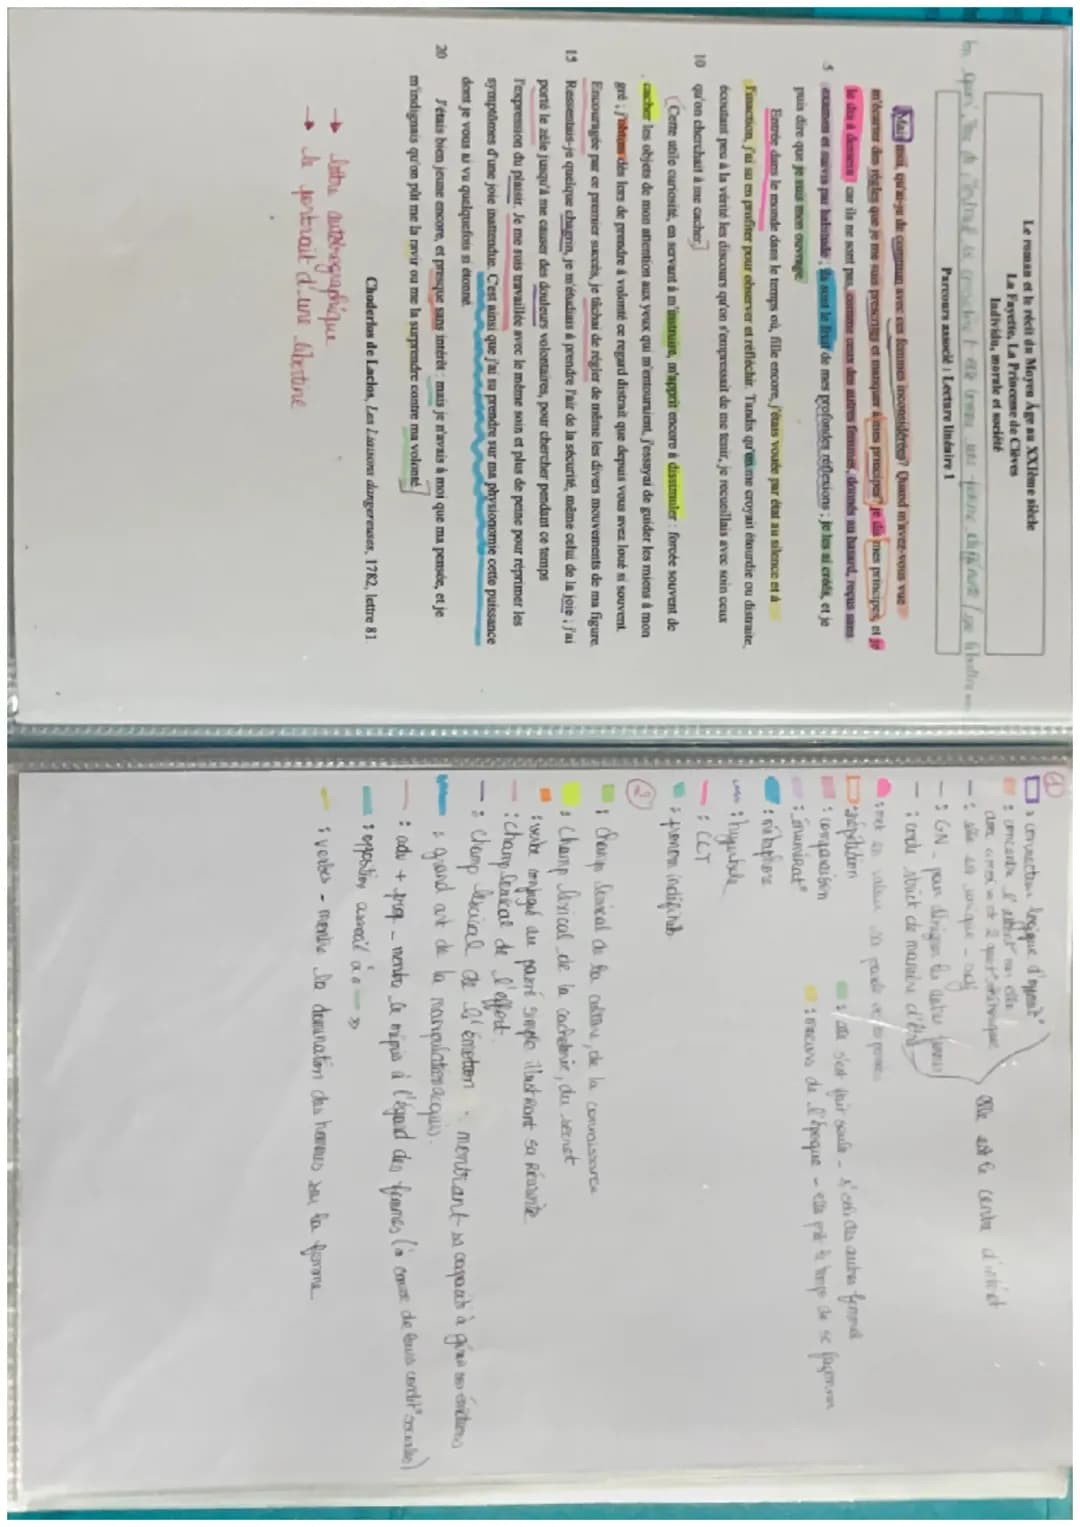 Le roman et le récit du Moyen Âge au XXIème siècle
La Fayette, La Princesse de Clèves
Individu, morale et société
Parcours associé : Lecture linéaire 1
Mais moi, qu'ai-je de commun avec ces femmes inconsidérées? Quand m'avez-vous vue
m'écarter des règles que je me suis prescrites et manquer à mes principes? je dis mes principes, et je
le dis à dessein : car ils ne sont pas, comme ceux des autres femmes, donnés au hasard, reçus sans
5 examen et suivis par habitude ; ils sont le fruit de mes profondes réflexions ; je les ai créés, et je
puis dire que je suis mon ouvrage.
Entrée dans le monde dans le temps où, fille encore, j'étais vouée par état au silence et à
l'inaction, j'ai su en profiter pour observer et réfléchir. Tandis qu'on me croyait étourdie ou distraite,
écoutant peu à la vérité les discours qu'on s'empressait de me tenir, je recueillais avec soin ceux
10 qu'on cherchait à me cacher.
Cette utile curiosité, en servant à m'instruire, m'apprit encore à dissimuler : forcée souvent de
cacher les objets de mon attention aux yeux qui m'entouraient, j'essayai de guider les miens à mon
gré ; j'obtins dès lors de prendre à volonté ce regard distrait que depuis vous avez loué si souvent.
Encouragée par ce premier succès, je tâchai de régler de même les divers mouvements de ma figure.
15 Ressentais-je quelque chagrin, je m'étudiais à prendre l'air de la sécurité, même celui de la joie ; j'ai
porté le zèle jusqu'à me causer des douleurs volontaires, pour chercher pendant ce temps
l'expression du plaisir. Je me suis travaillée avec le même soin et plus de peine pour réprimer les
symptômes d'une joie inattendue. C'est ainsi que j'ai su prendre sur ma physionomie cette puissance
dont je vous ai vu quelquefois si étonné.
20 J'étais bien jeune encore, et presque sans intérêt : mais je n'avais à moi que ma pensée, et je
m'indignais qu'on pût me la ravir ou me la surprendre contre ma volonté.
Choderlos de Laclos, Les Liaisons dangereuses, 1782, lettre 81
→ lettre autobiographique
→ le portrait d'une libertine
①
: connecteur logique d'opposit°
: elle est unique
Elle est le centre d'intérêt
: GN - pour désigner les autres femmes
: répétition
: comparaison
: elle s'est fait seule - des autres femmes
: énumérat°
: moeurs de l'époque - elle prit le temps de se façonner
: métaphore
: hyperbole
: CCT
: pronom indéfini
②
: champ lexical de la culture, de la connaissance
: champ lexical de la cachoterie, du secret
: verbe conjugué au passé simple illustrant sa réussite
: champ lexical de l'effort
: champ lexical de l'émotion : montrant sa capacité à gérer ses émotions
: grand art de la manipulation acquis.
: adv + prep - montre le mépris à l'égard des femmes
: opposition associé à
: verbes - montre la domination des hommes sur la femme.